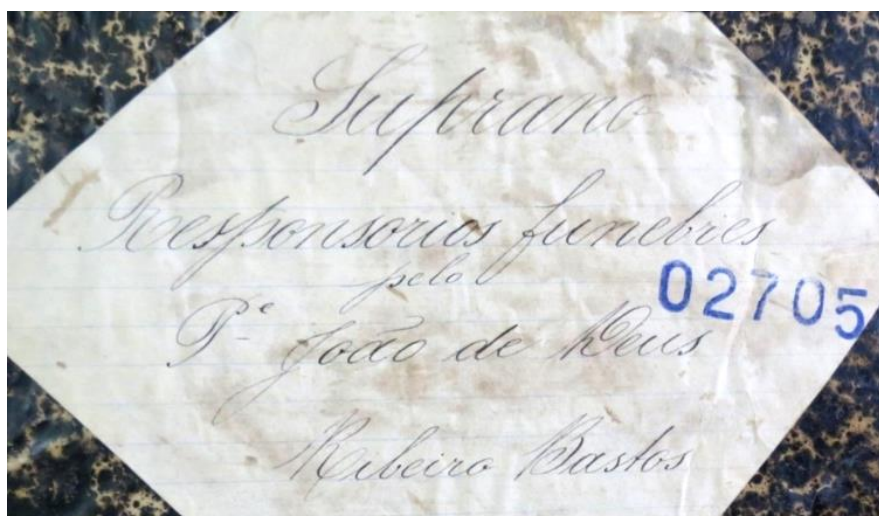 Suprano
Responsorios funebres
pelo
Pe João de Deus
02705
Ribeiro Bastos